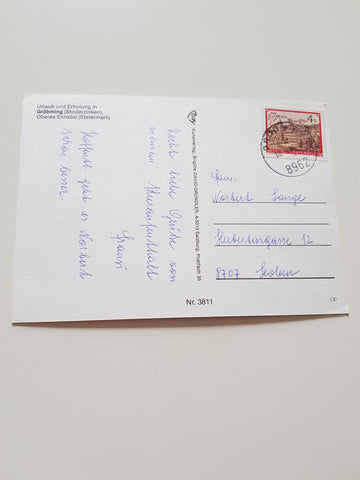 Urlaub und Erholung in
Gröbming (Stoderzinken),
Oberes Ennstal (Steiermark)
Recht liebe Grüße von
meinem Kuraufenthalt
Franzi
Hoffentl. geht es Norbert
schon besser
Alpenverlag, Brigitte DAVID-GRÜNDLER, A-5013 Salzburg, Postfach 35
Nr. 3811
4
8962
Fam.
Norbert Lange
Hubertusgasse 12
8707 Leoben